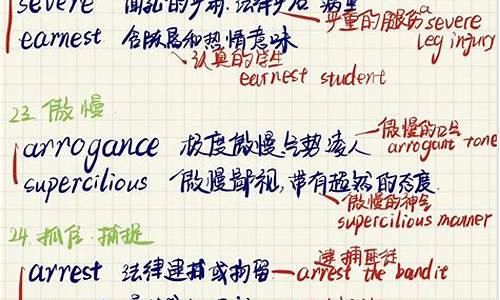 severe
严重的腿伤 a severe leg injury
earnest 含
和热情意味
认真的学生
earnest student
23. 傲慢
arrogance 极度傲慢、气势凌人
傲慢的口气
arrogant tone
supercilious 傲慢鄙视,带有超然的态度
傲慢的神气
supercilious manner
24. 抓住.捕捉
arrest 法律逮捕或拘留
逮捕匪徒
arrest the bandit